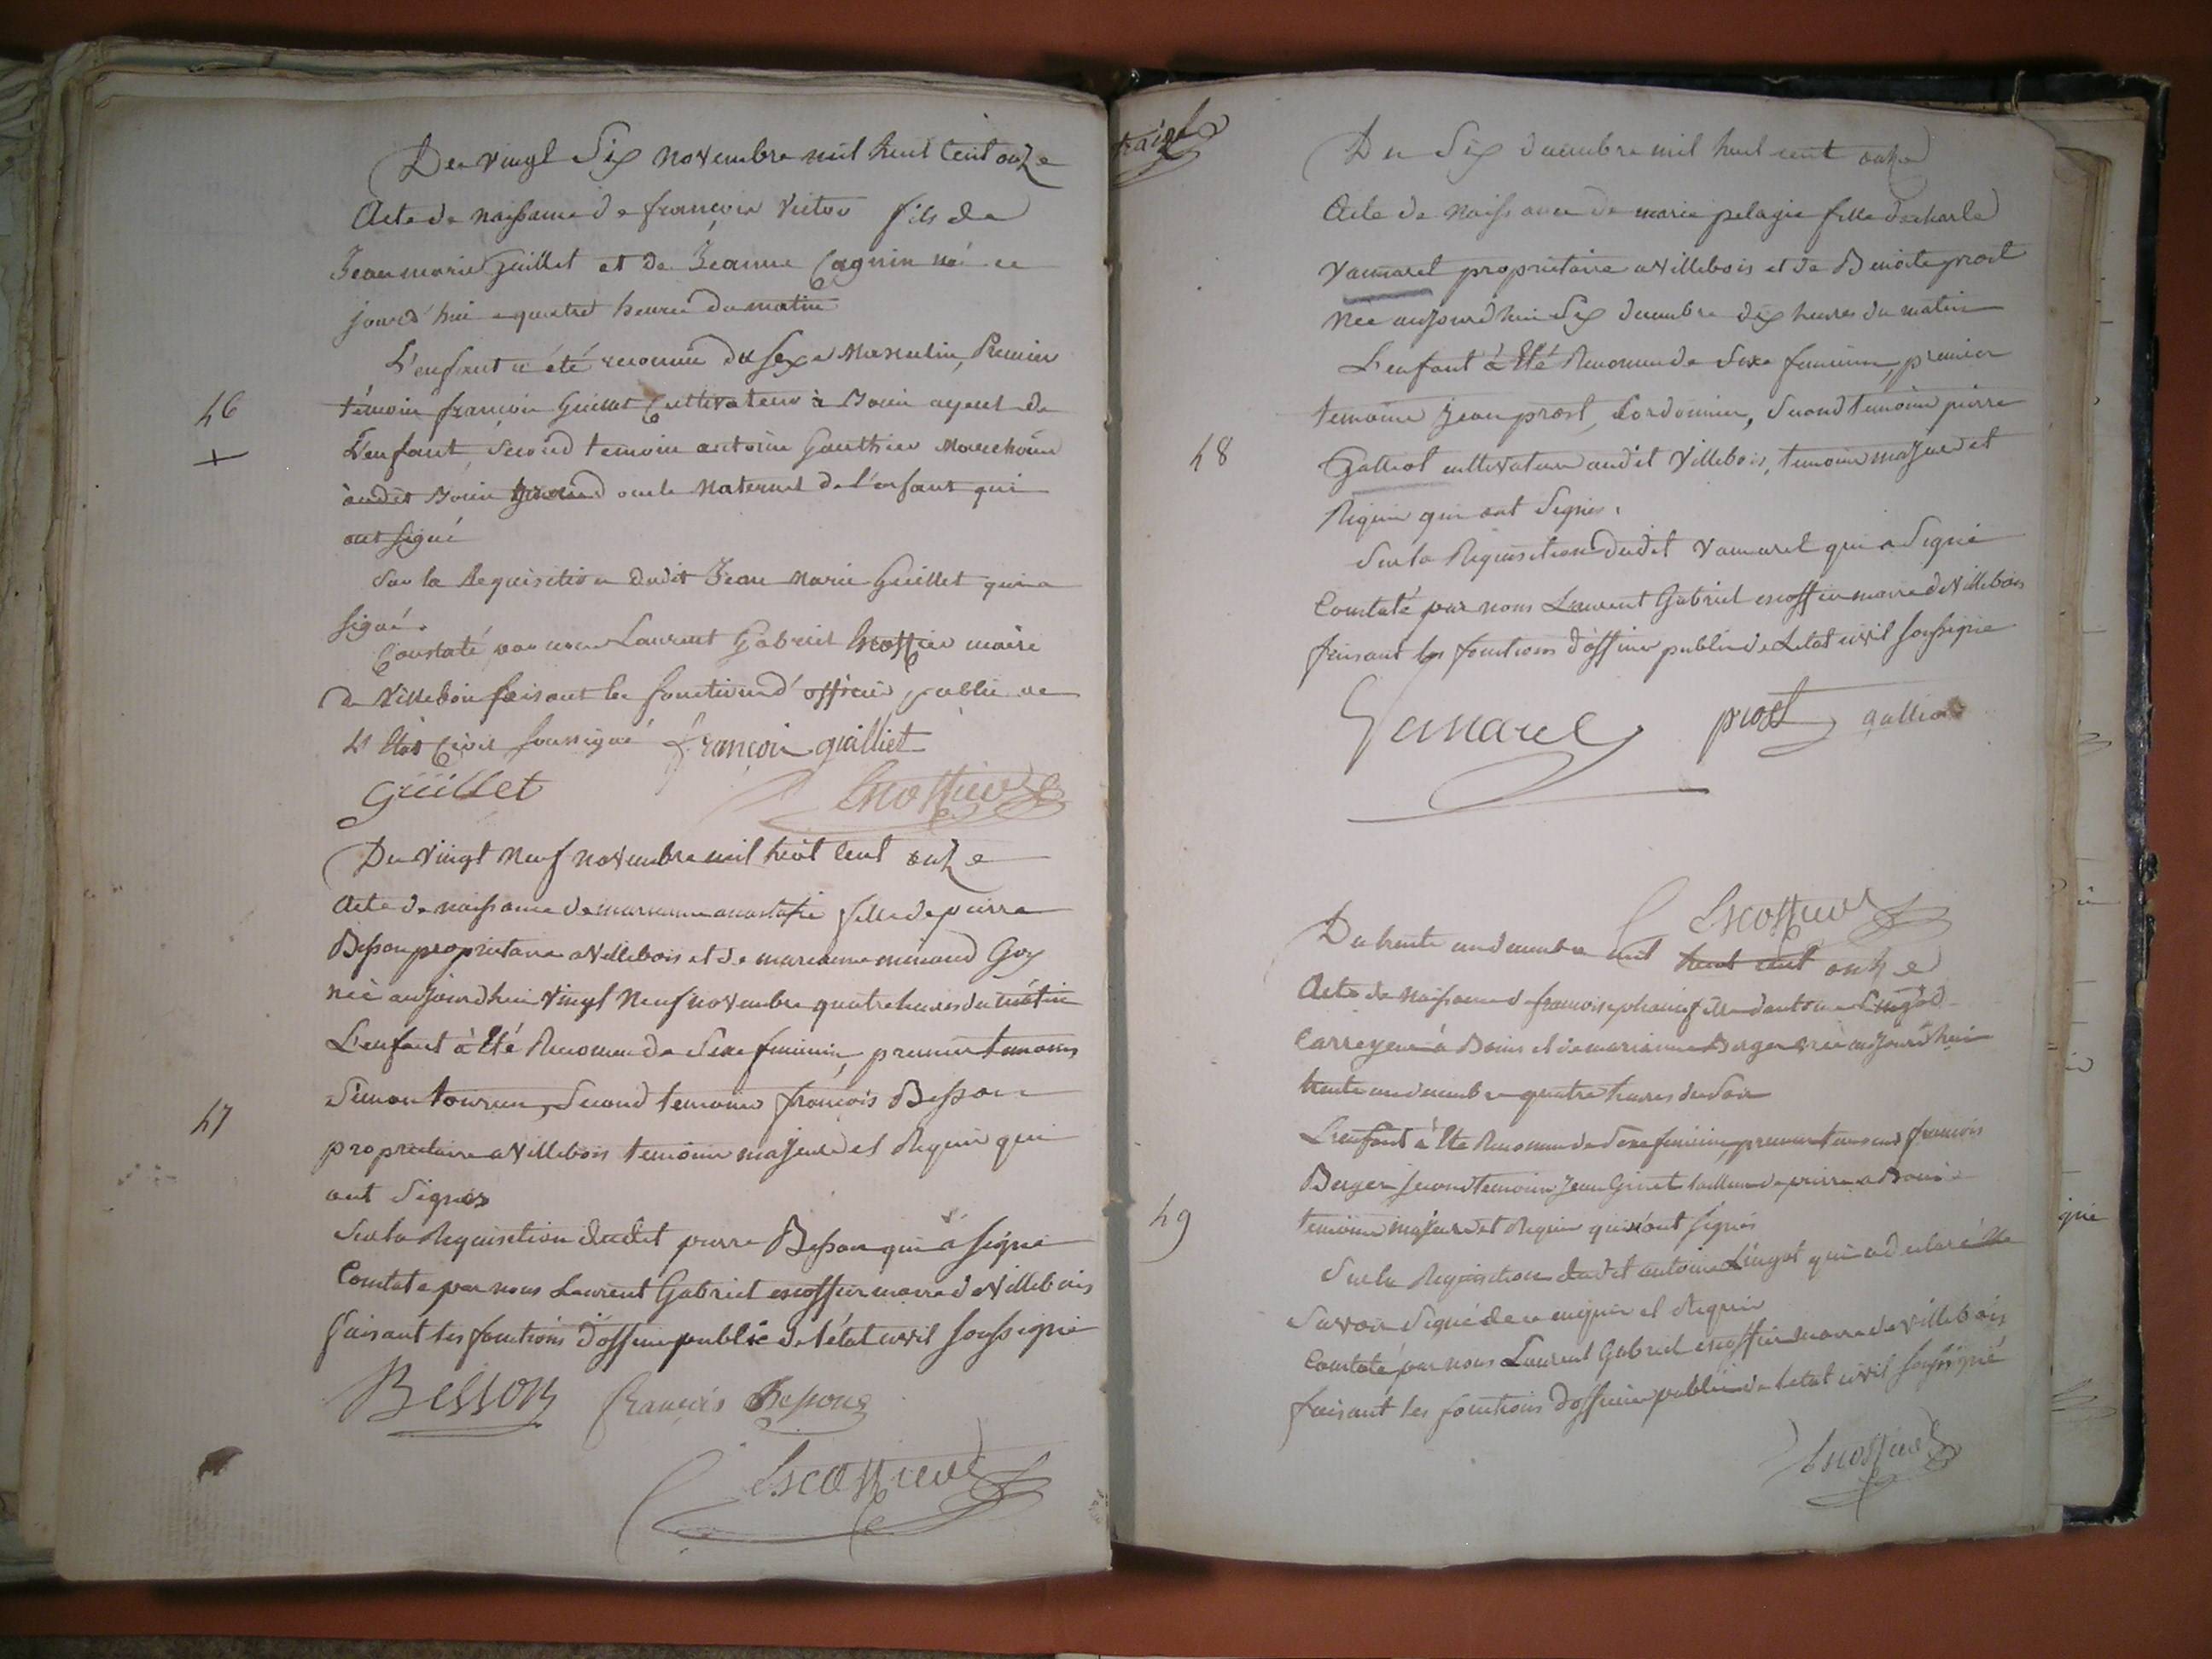 Du vingt Six novembre mil huit Cent onze
Acte de naissance de françois victor fils de
Jean marie Guillet et de Jeanne Cagnin né ce
jourd'hui a quatre heures du matin
L'enfant a été reconnu du sexe Masculin, Premier
46
témoin françois Guillet Cultivateur à Bouis ayeul de
L'enfant, second temoin antoine Gauthier
audit Bouis oncle Maternel de l'enfant qui
ont signé
Sur la Requisition dudit Jean Marie Guillet qui a
signé.
Constaté par nous Laurent Gabriel Escoffier maire
de Villebois faisant les fonctions d'officier public de
L'état Civil soussigné françois guilliet
Guillet Escoffier
Du Vingt Neuf novembre mil huit Cent onze
Acte de naissance de marianne anastasie fille de pierre
Besson propriétaire a Villebois et de marianne Goy
née aujourdhui Vingt Neuf novembre quatre heures du matin
L'enfant à Eté Reconnu de Sexe feminin, premier temoins
47
Simon tournier, Second temoins françois Besson
propriétaire a Villebois temoins majeurs et Requis qui
ont Signés
Sur la Requisition dudit pierre Besson qui à signé
Constaté par nous Laurent Gabriel escoffier maire de Villebois
faisant les fonctions d'officier public de l'état civil soussigné
Besson françois Besson
Escoffier
Du Six decembre mil huit cent onze
Acte de Naissance de marie pelagie fille de charle
Vamarel propriétaire a Villebois et de Benoite prost
Née aujourdhui Six decembre dix heures du matin
L'enfant à Eté Reconnu de Sexe feminin, premier
temoins Jean prost, Cordonnier, Second temoins pierre
48
Galliot cultivateur audit Villebois, temoins majeurs et
Requis qui ont Signés.
Sur la Requisition dudit Vamarel qui a Signé
Constaté par nous Laurent Gabriel escoffier maire de Villebois
faisant les fonctions d'officier public de Létat civil soussigné
Vamarel prost galliot
Escoffier
Du trente un decembre mil huit cent onze
Acte de Naissance de françoise fille d'antoine Lingot
Carroyeur à Bouis et de marianne Berger née aujourd'hui
trente un decembre quatre heures du soir
L'enfant à Eté Reconnu de Sexe feminin, premier temoins françois
Berger second temoins Jean Ginet tailleur de pierre a Bouis
49
temoins majeurs et Requis qui ont signés
Sur la Requisition dudit antoine Lingot qui a declaré Ne
Savoir Signé de ce enquis et Requis
Constaté par nous Laurent Gabriel escoffier maire de Villebois
faisant les fonctions d'officier public de letat civil soussigné
Escoffier